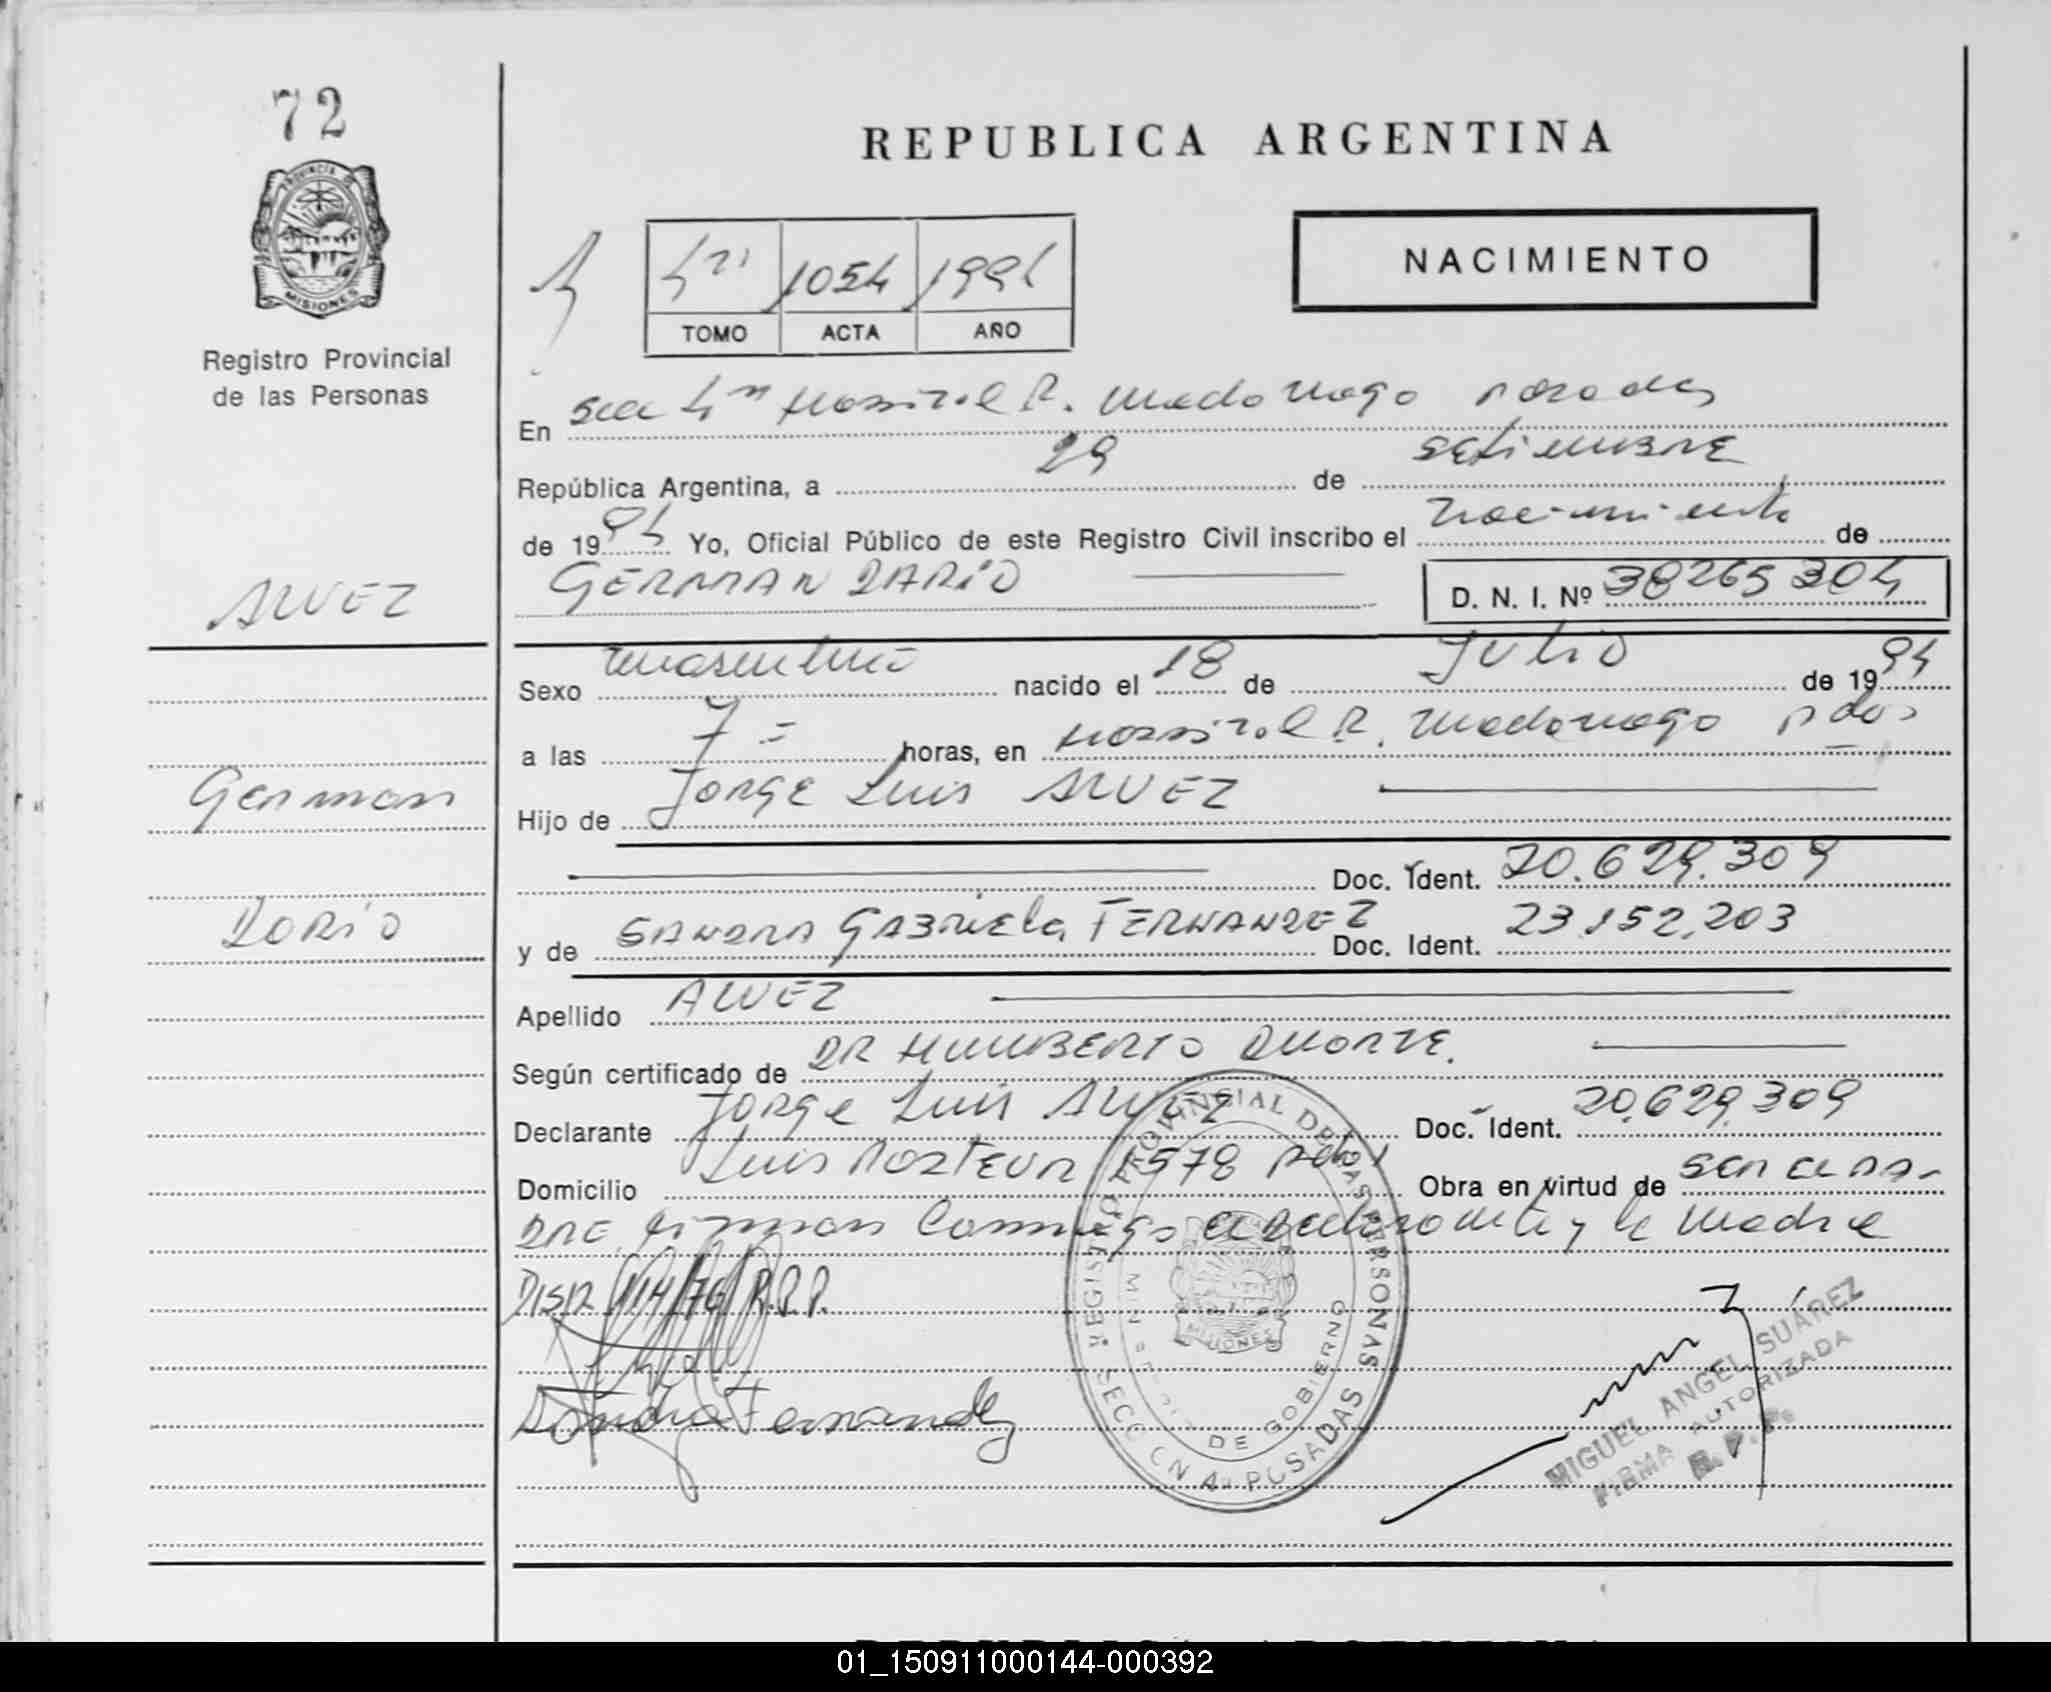 72
PROVINCIA DE
MISIONES
Registro Provincial
de las Personas
REPUBLICA ARGENTINA
NACIMIENTO
1054 1994
TOMO ACTA AÑO
En Sec 4ª Hospital R. Madariaga Posadas
República Argentina, a 29 de setiembre
de 1994 Yo, Oficial Público de este Registro Civil inscribo el nacimiento de
GERMAN DARIO D. N. I. Nº 38265304
ALVEZ
German
Dario
Sexo masculino nacido el 18 de Julio de 1994
a las 7 = horas, en Hospital R. Madariaga Pdas
Hijo de Jorge Luis ALVEZ
Doc. Ident. 20.629.309
y de SANDRA GABRIELA FERNANDEZ Doc. Ident. 23.152.203
Apellido ALVEZ
Según certificado de DR HUMBERTO DUARTE.
Declarante Jorge Luis ALVEZ Doc. Ident. 20.629.309
Domicilio Luis Pasteur 1578 Pdas Obra en virtud de ser el pa-
dre. firman conmigo el declarante y la madre
Disp 114/76 R.P.P.
Sandra Fernandez
REGISTRO PROVINCIAL DE LAS PERSONAS
SECCION 4ª POSADAS
MINISTERIO DE GOBIERNO
MISIONES
MIGUEL ANGEL SUÁREZ
FIRMA AUTORIZADA
R. P. P.
01_150911000144-000392